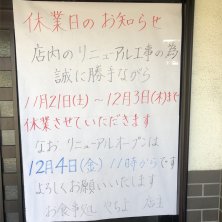 休業日のお知らせ
店内のリニューアル工事の為
誠に勝手ながら
11月21日(土)～12月3日(木)まで
休業させていただきます
なお リニューアルオープンは
12月4日(金) 11時からです
よろしくお願いいたします
お食事処 やちよ 店主